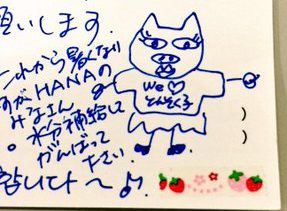 願いします.
これから暑くなり
すがHANAの
みなさん
水分補給して
がんばって
下さい
합니다~♪
We♡
とんそく子